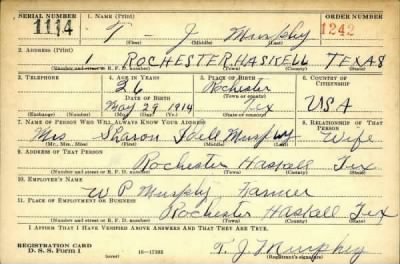 SERIAL NUMBER 1. NAME (Print) ORDER NUMBER
1114 T - J Murphy 1242
(First) (Middle) (Last)
2. ADDRESS (Print)
1 ROCHESTER, HASKELL TEXAS
(Number and street or R. F. D. number) (Town) (County) (State)
3. TELEPHONE 4. AGE IN YEARS 5. PLACE OF BIRTH 6. COUNTRY OF CITIZENSHIP
26 Rochester
DATE OF BIRTH (Town or county)
May 29 1914 Tex USA
(Exchange) (Number) (Mo.) (Day) (Yr.) (State or country)
7. NAME OF PERSON WHO WILL ALWAYS KNOW YOUR ADDRESS 8. RELATIONSHIP OF THAT PERSON
Mrs Sharon Murphy Wife
(Mr., Mrs., Miss) (First) (Middle) (Last)
9. ADDRESS OF THAT PERSON
Rochester Haskell Tex
(Number and street or R. F. D. number) (Town) (County) (State)
10. EMPLOYER'S NAME
W P Murphy Farmer
11. PLACE OF EMPLOYMENT OR BUSINESS
Rochester Haskell Tex
(Number and street or R. F. D. number) (Town) (County) (State)
I AFFIRM THAT I HAVE VERIFIED ABOVE ANSWERS AND THAT THEY ARE TRUE.
REGISTRATION CARD
D. S. S. Form 1 (over) 16—17105 T. J. Murphy
(Registrant's signature)